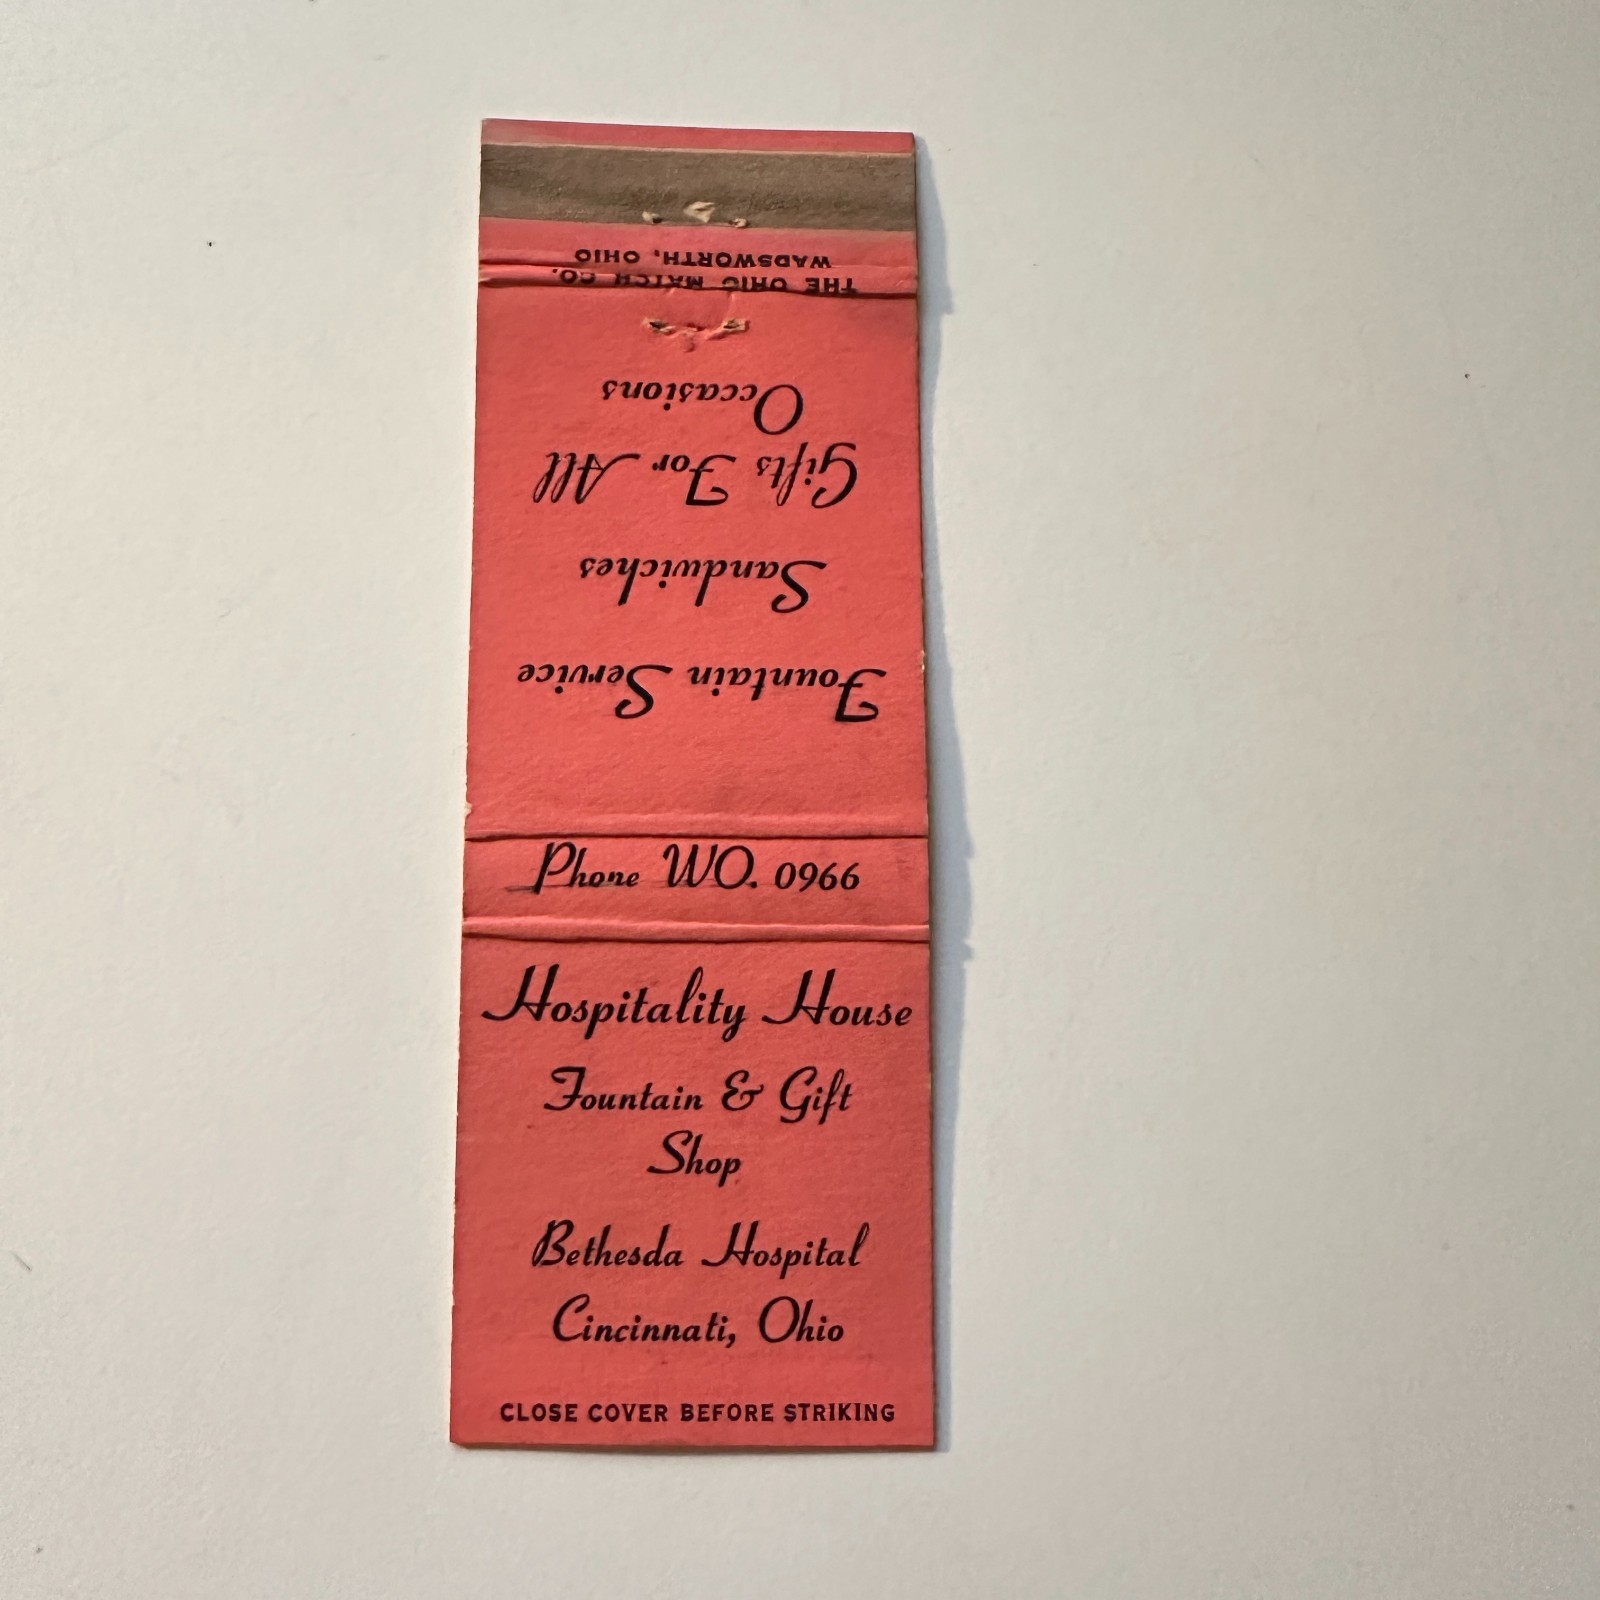 THE OHIO MATCH CO.
WADSWORTH, OHIO
Fountain Service
Sandwiches
Gifts For All
Occasions
Phone WO. 0966
Hospitality House
Fountain & Gift
Shop
Bethesda Hospital
Cincinnati, Ohio
CLOSE COVER BEFORE STRIKING